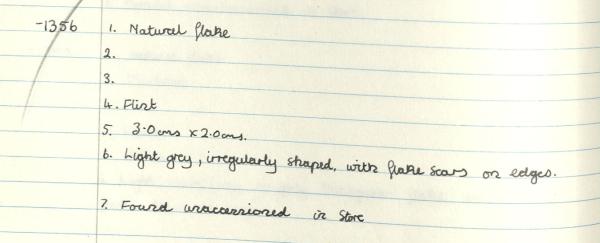 -1356 1. Natural flake
2.
3.
4. Flint
5. 3.0cms x 2.0cms.
6. Light grey, irregularly shaped, with flake scars on edges.
7. Found unaccessioned in Store